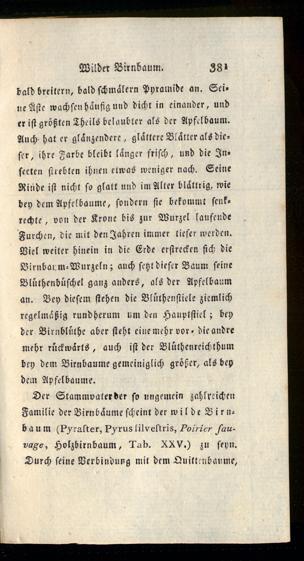 Wilder Birnbaum. 381
bald breitern, bald schmälern Pyramide an. Sei-
ne Äste wachsen häufig und dicht in einander, und
er ist größten Theils belaubter als der Apfelbaum.
Auch hat er glänzendere, glättere Blätter als die-
ser, ihre Farbe bleibt länger frisch, und die In-
secten streben ihnen etwas weniger nach. Seine
Rinde ist nicht so glatt und im Alter blättrig, wie
bey dem Apfelbaume, sondern sie bekommt senk-
rechte, von der Krone bis zur Wurzel laufende
Furchen, die mit den Jahren immer tiefer werden.
Viel weiter hinein in die Erde erstrecken sich die
Birnbaum-Wurzeln; auch setzt dieser Baum seine
Blüthenbüschel ganz anders, als der Apfelbaum
an. Bey diesem stehen die Blüthenstiele ziemlich
regelmäßig rundherum um den Hauptstiel; bey
der Birnblüthe aber steht eine mehr vor- die andre
mehr rückwärts, auch ist der Blüthenreichthum
bey dem Birnbaume gemeiniglich größer, als bey
dem Apfelbaume.
Der Stammvater der so ungemein zahlreichen
Familie der Birnbäume scheint der wilde Birn-
baum (Pyraster, Pyrus silvestris, Poirier sau-
vage, Holzbirnbaum, Tab. XXV.) zu seyn.
Durch seine Verbindung mit dem Quittenbaume,